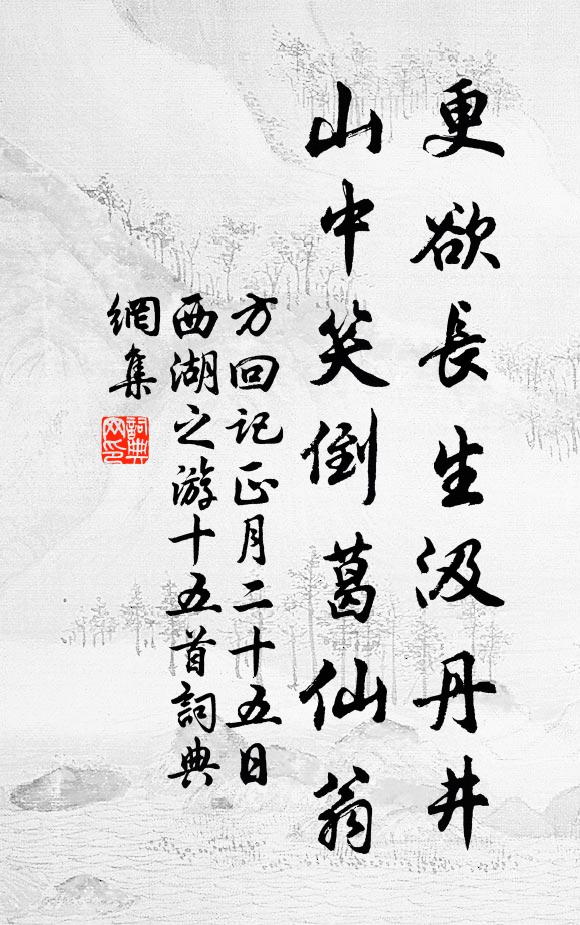 更欲長生汲丹井
山中笑倒葛仙翁
方回記正月二十五日
西湖之游十五首詞典
網集
詞典
网印